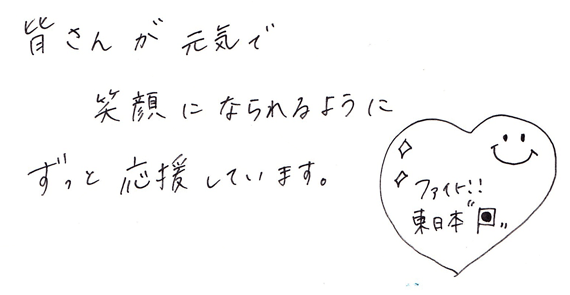 皆さんが元気で
笑顔になられるように
ずっと応援しています。
ファイト!!
東日本